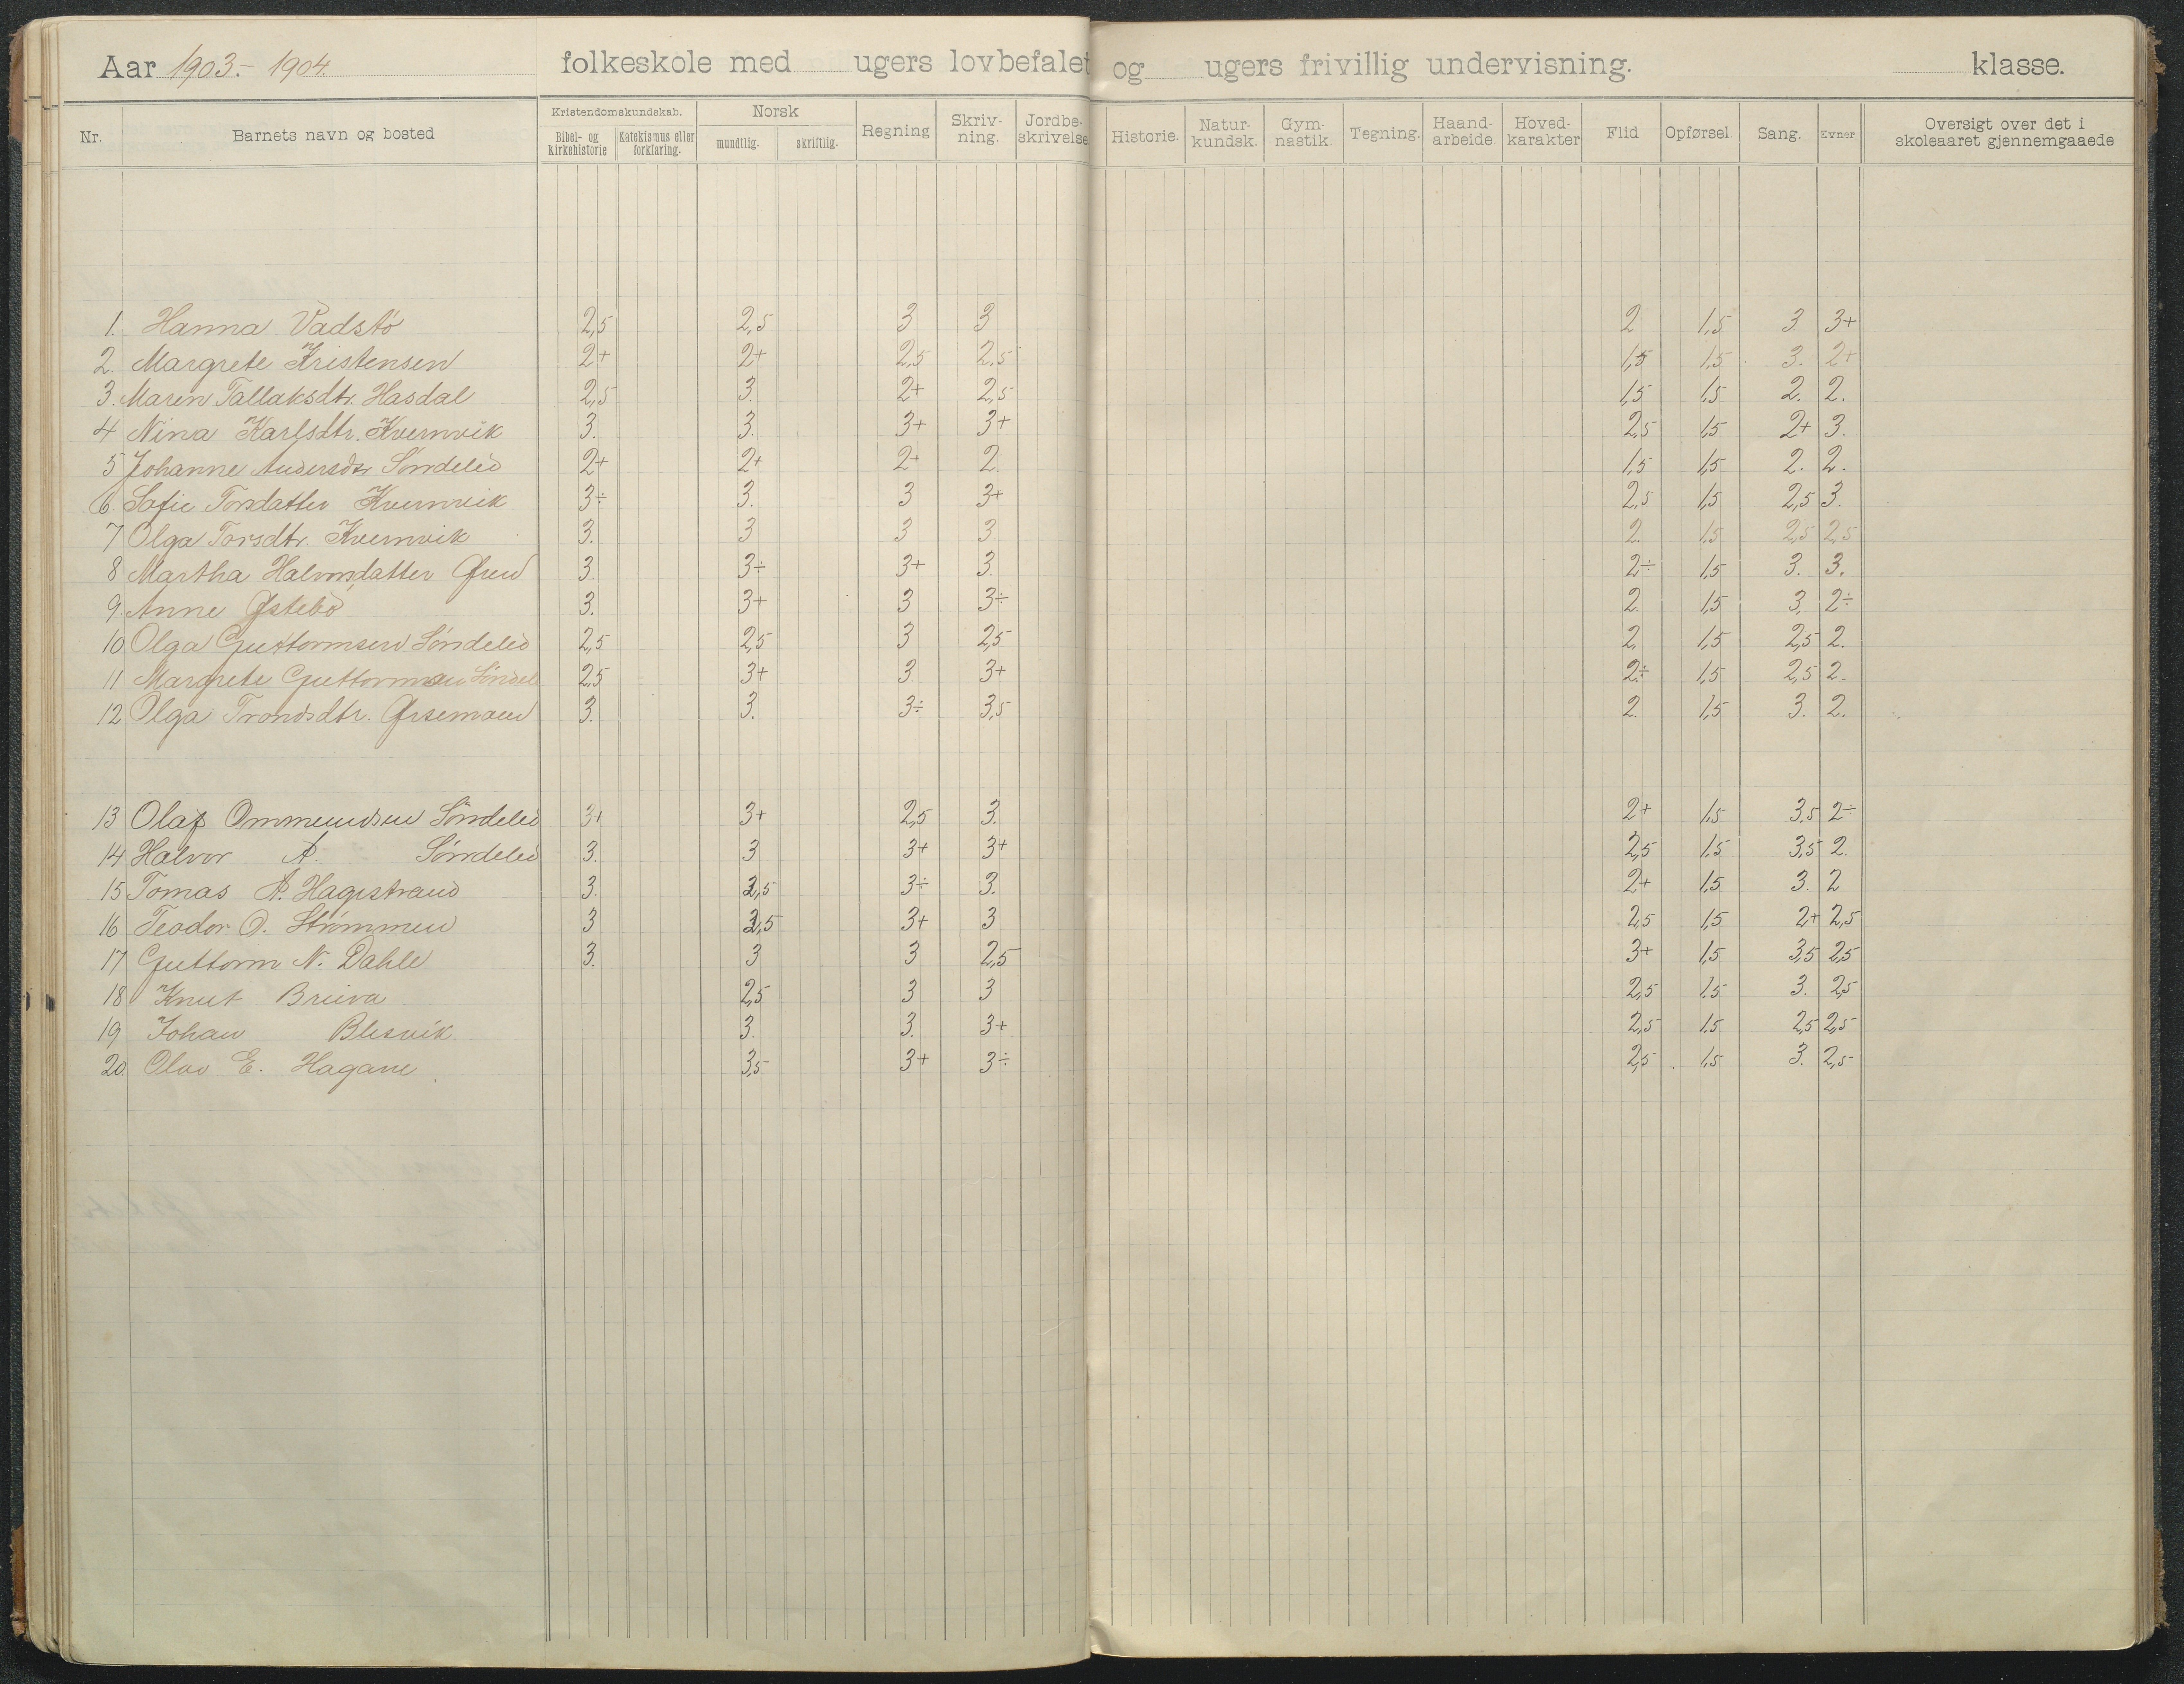 Aar 1903.- 1904. folkeskole med ugers lovbefalet og ugers frivillig undervisning. klasse.
Nr. Barnets navn og bosted Kristendomskundskab. Bibel- og kirkehistorie Katekismus eller forklaring. Norsk mundtlig. skriftlig. Regning Skrivning. Jordbeskrivelse Historie. Naturkundsk. Gymnastik. Tegning. Haandarbeide. Hovedkarakter Flid Opførsel. Sang. Evner Oversigt over det i skoleaaret gjennemgaaede
1. Hanna Vadstö 2,5 2,5 3 3 2 1,5 3 3+
2. Margrete Kristensen 2+ 2+ 2,5 2,5 1,5 1,5 3. 2+
3. Maren Tallaksdtr. Hasdal 2,5 3. 2+ 2,5 1,5 1,5 2. 2.
4 Nina Karlsdtr. Kvernvik 3. 3. 3+ 3+ 2,5 1,5 2+ 3.
5 Johanne Andersdtr Söndeled 2+ 2+ 2+ 2. 1,5 1,5 2. 2.
6. Sofie Torsdatter Kvernvik 3÷ 3. 3 3+ 2,5 1,5 2,5 3.
7 Olga Torsdtr. Kvernvik 3. 3 3 3. 2. 1,5 2,5 2,5
8 Martha Halvorsdatter 3. 3÷ 3+ 3. 2÷ 1,5 3. 3.
9. Anne Østebö 3. 3+ 3 3÷ 2. 1,5 3. 2÷
10 Olga Guttormsen Söndeled 2,5 2,5 3 2,5 2. 1,5 2,5 2.
11 Margrete Guttormsen Söndel 2,5 3+ 3. 3+ 2÷ 1,5 2,5 2.
12 Olga Trondsdtr. 3. 3. 3÷ 3,5 2. 1,5 3. 2.
13 Olaf Ommundsen Söndeled 3+ 3+ 2,5 3. 2+ 1,5 3,5 2÷
14 Halvor A. Söndeled 3. 3 3+ 3+ 2,5 1,5 3,5 2.
15 Tomas A. Hagestrand 3. 2,5 3÷ 3. 2+ 1,5 3. 2
16 Teodor O. Strømmen 3 2,5 3+ 3 2,5 1,5 2+ 2,5
17 Guttorm N. Dahle 3. 3 3 2,5 3+ 1,5 3,5 2,5
18 Knut Breiva 2,5 3 3 2,5 1,5 3. 2,5
19 Johan Blesvik 3. 3. 3+ 2,5 1,5 2,5 2,5
20. Olav E. Hagane 3,5 3+ 3÷ 2,5 1,5 3. 2,5